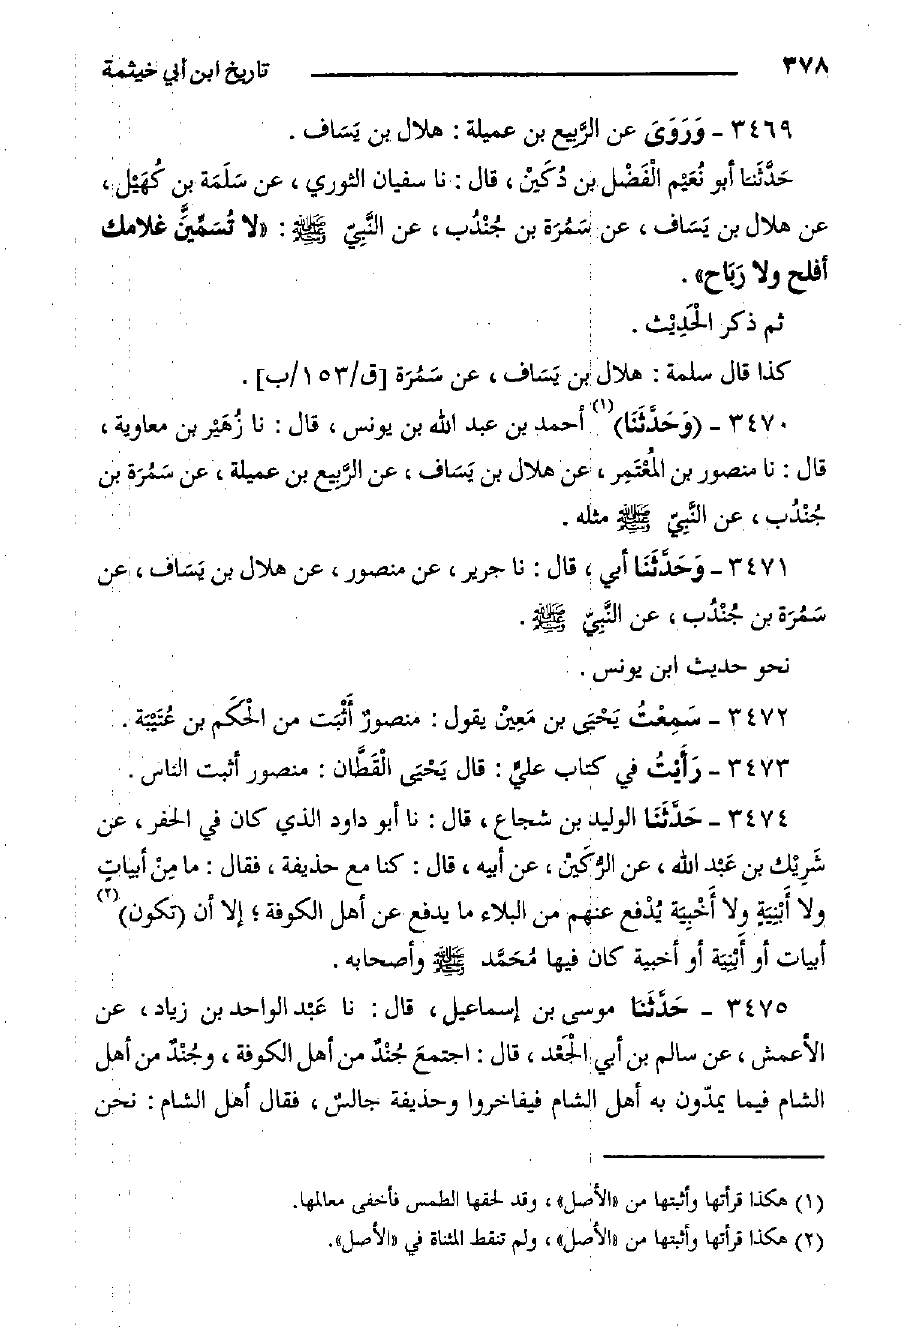 ٣٧٨ تاريخ ابن أبي خيثمة
٣٤٦٩ - وَرَوَىَ عن الرَّبيع بن عميلة : هلال بن يَسَاف .
حَدَّثَنَا أبو نُعَيْم الْفَضْل بن دُكَيْن ، قال : نا سفيان الثوري ، عن سَلَمَة بن كُهَيْل ،
عن هلال بن يَسَاف ، عن سَمُرَة بن جُنْدُب ، عن النَّبِيّ ﷺ : «لا تُسَمِّيَنَّ غلامك
أفلح ولا رَبَاح» .
ثم ذكر الْحَدِيْث .
كذا قال سلمة : هلال بن يَسَاف ، عن سَمُرَة [ق/١٥٣/ب] .
٣٤٧٠ - (وَحَدَّثَنَا)(١) أحمد بن عبد الله بن يونس ، قال : نا زُهَيْر بن معاوية ،
قال : نا منصور بن الْمُعْتَمِر ، عن هلال بن يَسَاف ، عن الرَّبيع بن عميلة ، عن سَمُرَة بن
جُنْدُب ، عن النَّبِيّ ﷺ مثله .
٣٤٧١ - وَحَدَّثَنَا أبي ، قال : نا جرير ، عن منصور ، عن هلال بن يَسَاف ، عن
سَمُرَة بن جُنْدُب ، عن النَّبِيّ ﷺ .
نحو حديث ابن يونس .
٣٤٧٢ - سَمِعْتُ يَحْيَى بن مَعِيْن يقول : منصورٌ أَثْبَت من الْحَكَم بن عُتَيْبَة .
٣٤٧٣ - رَأَيْتُ في كتاب عليٍّ : قال يَحْيَى الْقَطَّان : منصور أثبت الناس .
٣٤٧٤ - حَدَّثَنَا الوليد بن شجاع ، قال : نا أبو داود الذي كان في الحفر ، عن
شَرِيْك بن عَبْد الله ، عن الرُّكَيْن ، عن أبيه ، قال : كنا مع حذيفة ، فقال : ما مِنْ أبياتٍ
ولا أَبْنِيَةٍ ولا أَخْبِيَة يُدْفع عنهم من البلاء ما يدفع عن أهل الكوفة ؛ إلا أن (تكون)(٢)
أبيات أو أَبْنِيَة أو أخبية كان فيها مُحَمَّد ﷺ وأصحابه .
٣٤٧٥ - حَدَّثَنَا موسى بن إسماعيل ، قال : نا عَبْد الواحد بن زياد ، عن
الأعمش ، عن سالم بن أبي الْجَعْد ، قال : اجتمعَ جُنْدٌ من أهل الكوفة ، وجُنْدٌ من أهل
الشام فيما يمدّون به أهل الشام فيفاخروا وحذيفة جالسٌ ، فقال أهل الشام : نحن
(١) هكذا قرأتها وأثبتها من «الأصل» ، وقد لحقها الطمس فأخفى معالمها.
(٢) هكذا قرأتها وأثبتها من «الأصل» ، ولم تنقط المثناة في «الأصل».